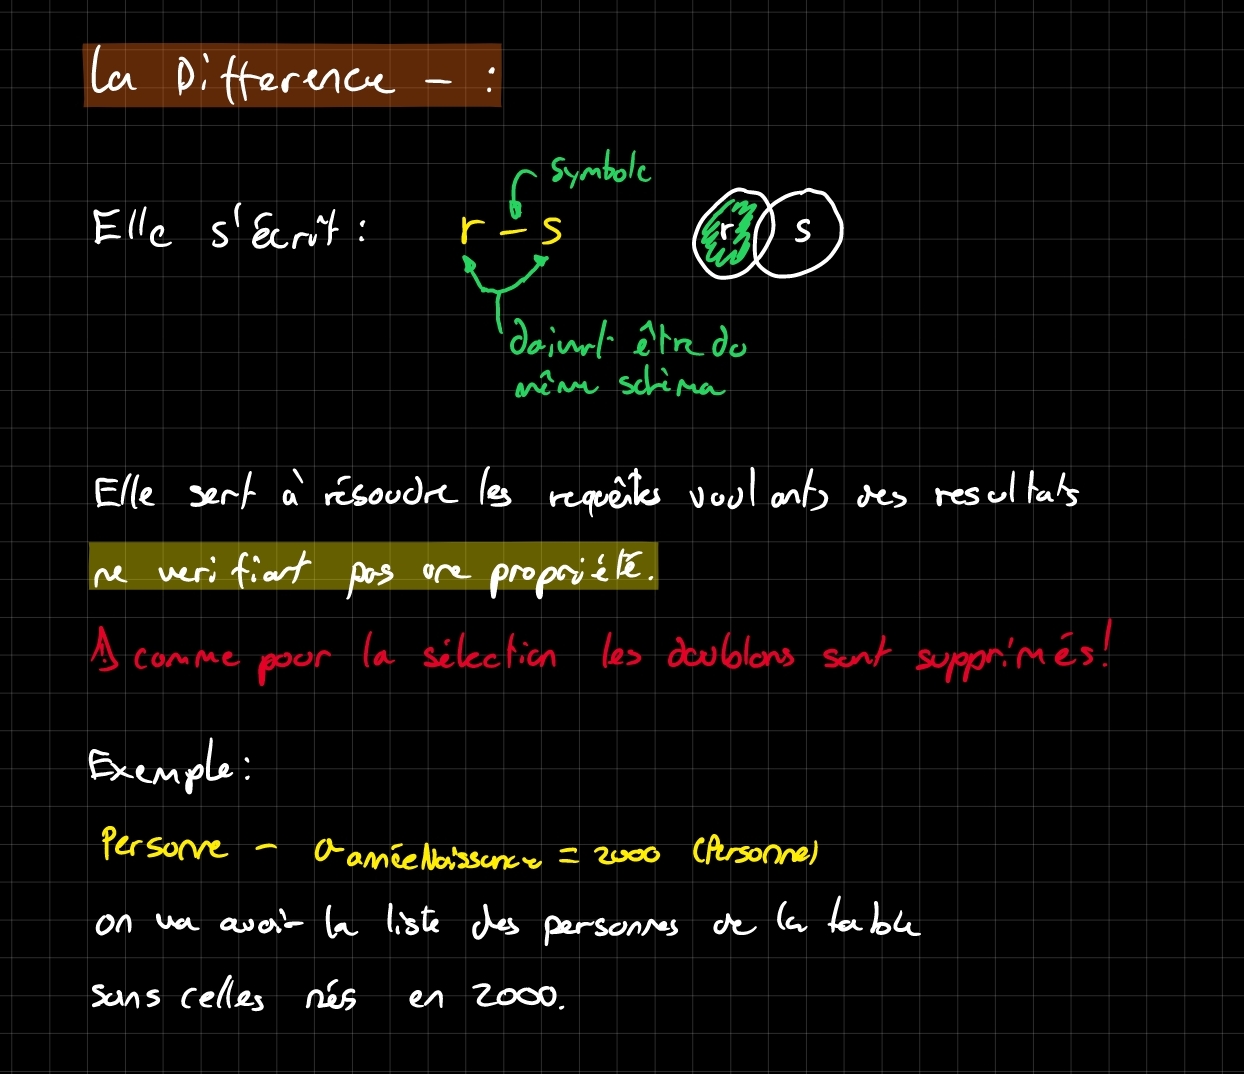 La Difference - :
symbole
Elle s'écrit :
r - s
r
s
doivent être du
même schéma
Elle sert à résoudre les requêtes voulants des resultats
ne verifiant pas une propriété.
⚠ comme pour la sélection les doublons sont supprimés!
Exemple:
Personne - σ annéeNaissance = 2000 (Personne)
on va avoir la liste des personnes de la table
sans celles nés en 2000.